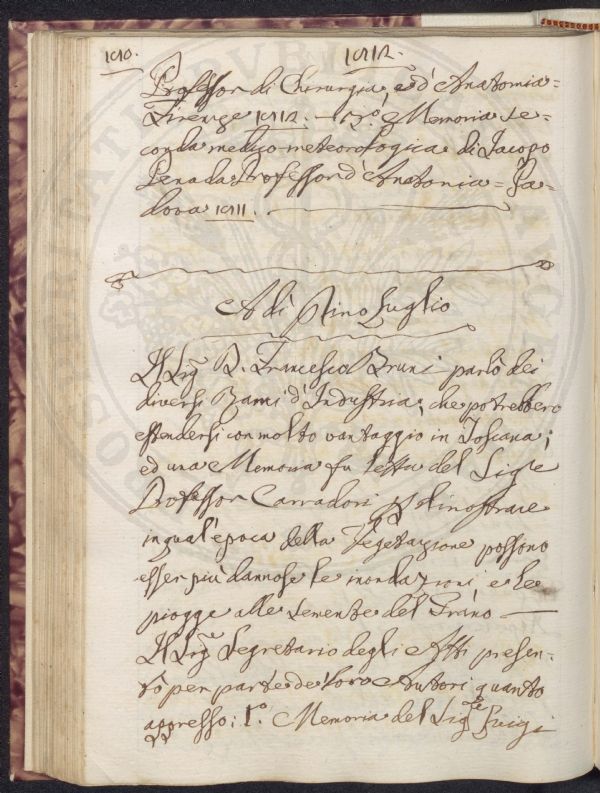 190. 1812.
Professor di Chirurgia, e d'Anatomia =
Firenze 1812. — 13.º Memoria se-
conda medico-meteorologica di Jacopo
Penada Professor d'Anatomia = Pa-
dova 1811.
Adì Primo Luglio
Il Sig.r D. Francesco Bruni parlò dei
diversi Rami d'Industria, che potrebbero
estendersi con molto vantaggio in Toscana;
ed una Memoria fu letta del Sig.re
Professor Carradori p. dimostrare
in qual'epoca della Vegetazione possono
esser più dannose le inondazioni, e le
piogge alle semente del Grano —
Il Sig.r Segretario degli Atti presen-
tò per parte de' loro Autori quanto
appresso: 1.º Memoria del Sig.re Luigi